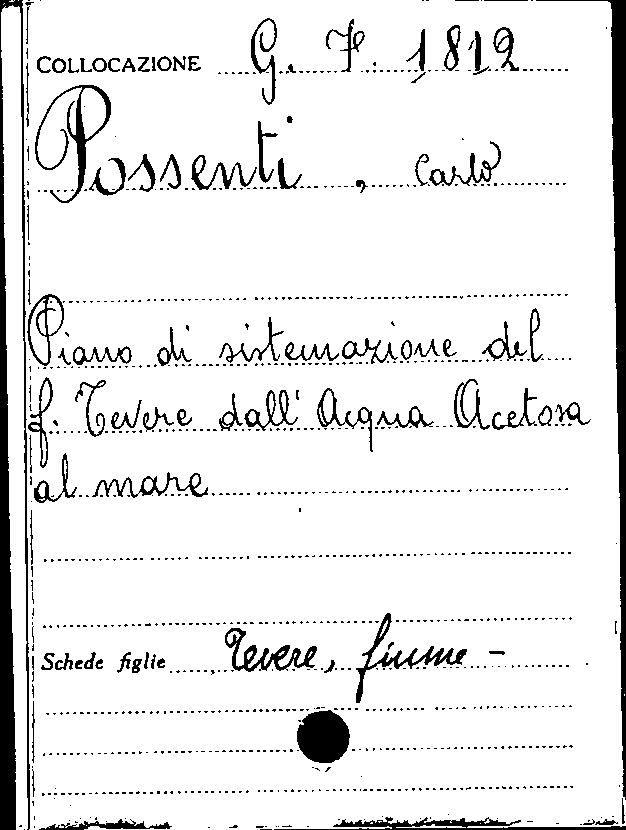 COLLOCAZIONE G. F. 1812
Possenti, Carlo
Piano di sistemazione del
f. Tevere dall' Acqua Acetosa
al mare
Schede figlie Tevere, fiume -